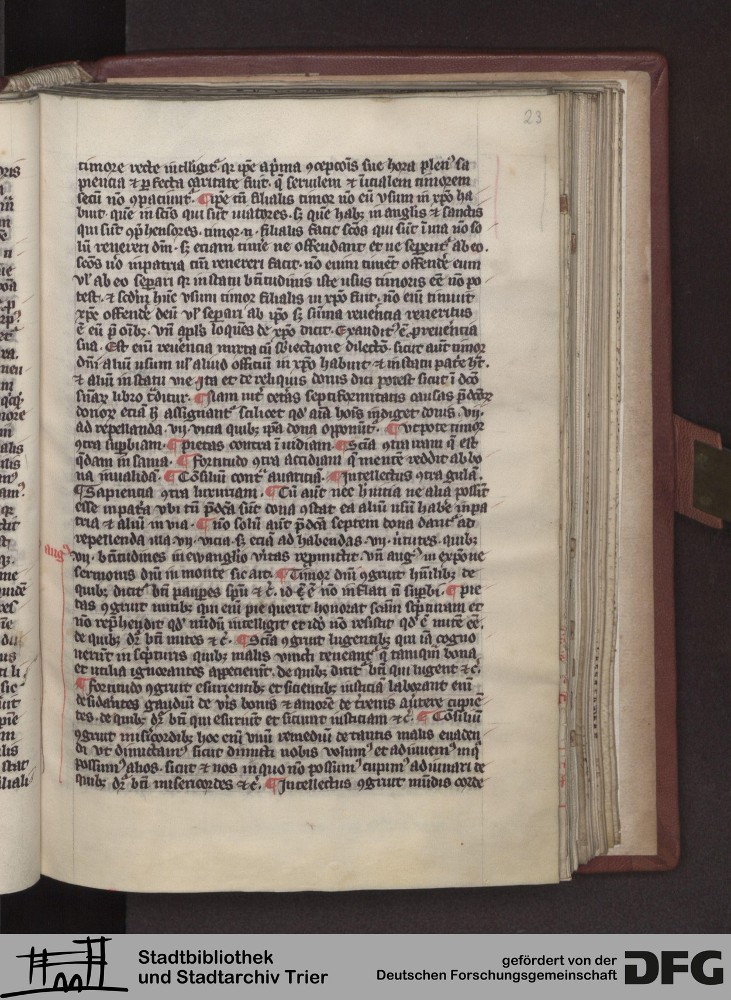 23
timore recte intelligit᷑ qr ip̅e a p̅ma ɔcepcoı̅s sue hora plen᷒ sa
piencia ⁊ p̱fecta caritate fuit. q̅ seruilem ⁊ inicialem timorem
secū nō paciunt᷑. ¶ ip̅e tn̅ filialis timor nō eū vsum in xp̅o ha
buit. que in sc̅is qui su̅t viatores. s; que̅ hab; in angl̅is ⁊ sanctis
qui su̅t ɔp̅hensores. timor .n. filialis facit sc̅os qui su̅t i̅ uia nō so
lū reuereri dn̅m. s; eciam time ne offendant et ne sep̱ent᷑ ab eo.
sc̅os u̅o in patria tm̅ reuereri facit. nō enim timēt offende eum
vl᷑ ab eo sep̱ari qr in statu bt̅itudinis iste usus timoris ee̅ nō po
test. ⁊ scd̅m hūc vsum timor filialis in xp̅o fuit. nō eni̅ timuit
xp̅c offende deū vl᷑ sep̱ari ab ip̅o s; su̅ma reue̅ntia reueritus
e̅ eū p̅ oı̅b;. vn̅ apl̅s loque̅s de xp̅o dicit. Exaudit᷒ e̅ p̱ reue̅ncia
sua. Est eni̅ reue̅ncia
dn̅i aliū usum ul᷑ aliud officiū in xp̅o habuit ⁊ in stam pat̅e h̅t.
⁊ aliū in statu vie. Ita et de reliquis donis dici potest sicut i̅
su̅ar libro
donor̅ ecia̅ assignant᷑ scilicet qd᷑ ai̅a hoı̅s indiget donis .vij.
ad repellanda .vij. vicia quib; ip̅a dona opponu̅t᷑. ¶ vtpote timor
ɔtra suꝑbiam. ¶ pietas contra i̅uidiam. ¶ Sci̅a ɔtra iram q̅ est
qd̅am insania. ¶ Fortitudo ɔtra accidiam q̅ mente̅ reddit ad bo
na inualida̅. ¶ Co̅siliū cont᷑ auaricia̅. ¶ Intellectus ɔtra gula̅.
¶ Sapiencia ɔtra luxuriam. ¶ Cū aut̅ nec h̅ uitia ne alia possu̅t
esse in pat̅a vbi tn̅ p̅dc̅a su̅t dona ɔstat ea aliū usū habe̅ in pa
tria ⁊ aliū in via. ¶ nō solū aut̅ p̅dc̅a septem dona dant᷑ ad
repellenda ista vij. vicia. s; eciā ad habendas vij. v̅tutes. quib;
aug᷒
vij. bt̅itudines in ewanglio v̅itas repmittit. vn̅ aug᷒ in expo̅ne
sermonis dni̅ in monte sic ait. ¶ Timor dni̅ ɔgruit hu̅ilib; de
quib; dicit᷑ bt̅i paup̱es sp̅u ⁊ c̅. id e̅ nō inflati n̅ suꝑbi. ¶ pie
tas ɔgruit mitib; qui eni̅ pie querit honorat sc̅am sc̅pturam et
nō rep̅hendit qd᷑ nūdū intelligit et ido̅ nō resistit qd᷑ e̅ mite̅ ee̅.
de quib; dr̅ bt̅i mites ⁊ c̅. ¶ Sci̅a ɔgruit lugentib; qui ia̅ cogno
ueru̅t in sc̅pturis quib; malis vincti teneant᷑ q̅ tamqua̅ bona
et utilia ignorantes appecieru̅t. de quib; dicit᷑ bt̅i qui lugent ⁊ c̅.
¶ Fortitudo ɔgruit esurientib; et sicientib; iusticia̅ laborant eni̅
desidantes gaudiū de v̅is bonis ⁊ amore̅ de t̅renis au̅tere cupie̅
tes. de quib; dr̅ bt̅i qui esuriu̅t et siciunt iusticiam ⁊ c̅. ¶ Co̅siliū
ɔgruit mis̅icordib; hoc eni̅ vnu̅ remediu̅ de tantis malis euaden
di vt dimittam᷒ sicut dimitti nobis volum᷒ et adiuuem᷒ in q̅
possum᷒ alios. sicut ⁊ nos in quo nō possum᷒ cupim᷒ adiuuari de
quib; dr̅ bt̅i misericordes ⁊ c̅. ¶ Intellectus ɔgruit mu̅dis corde
Stadtbibliothek
und Stadtarchiv Trier
gefördert von der
Deutschen Forschungsgemeinschaft
DFG